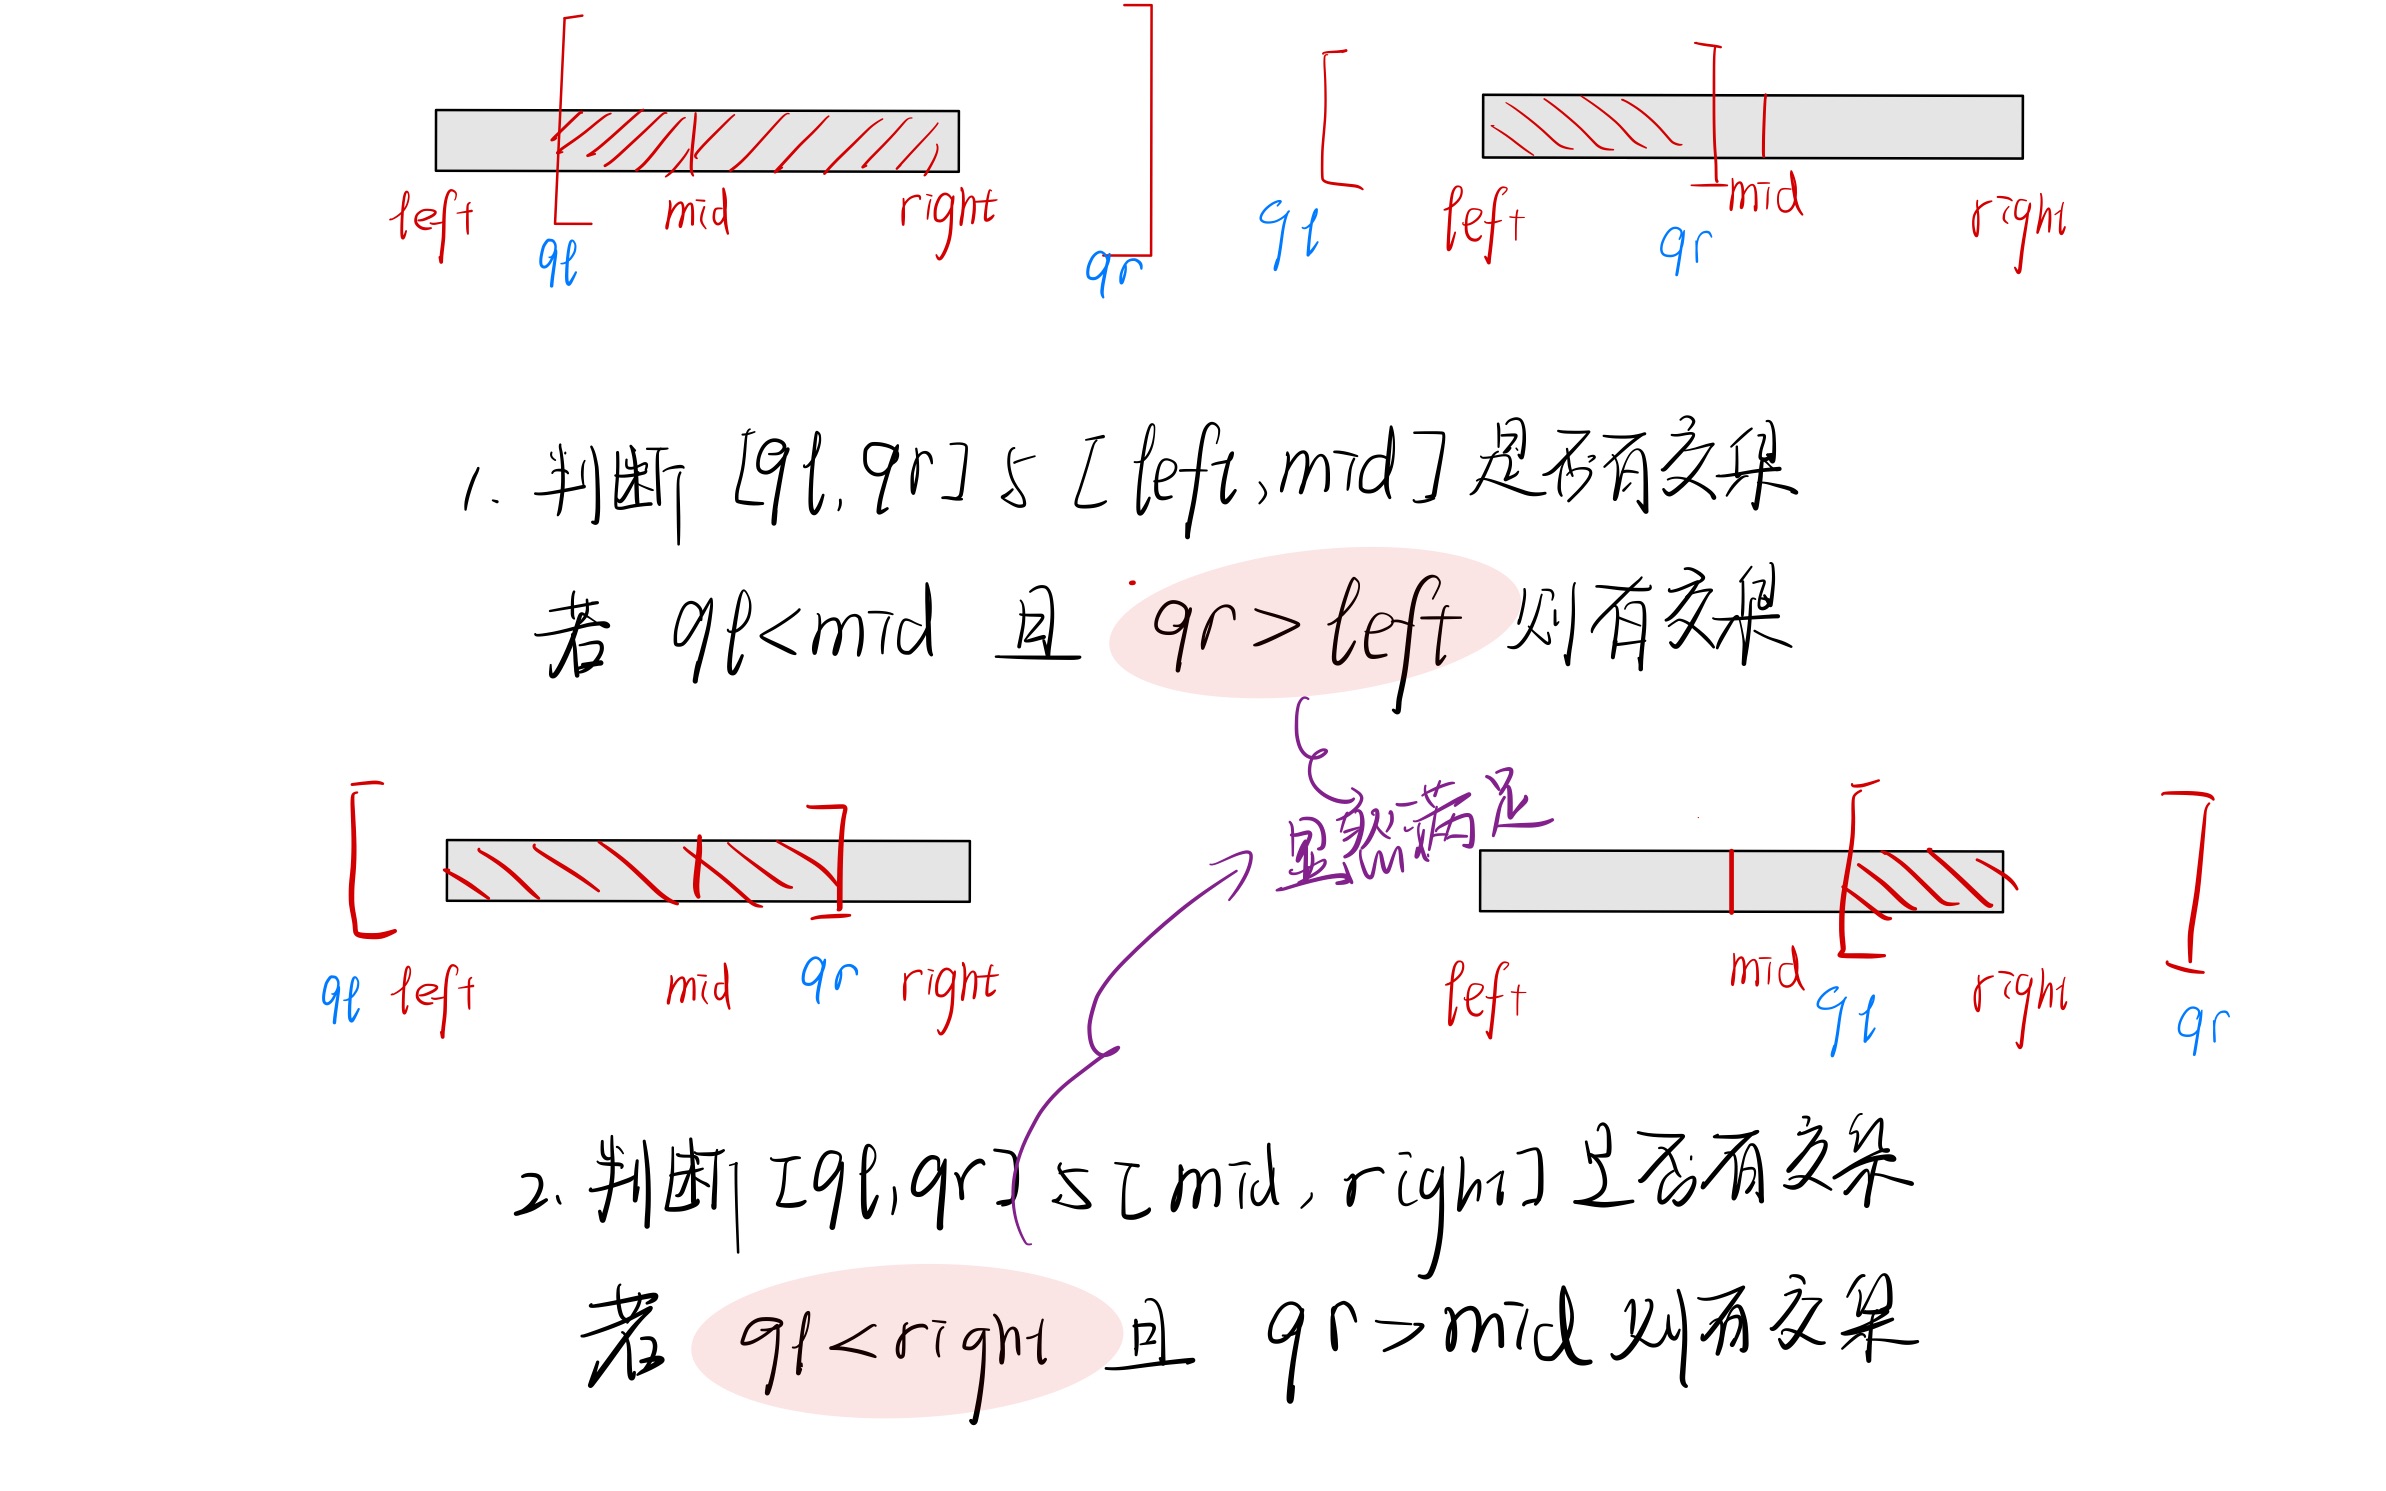 left ql mid right qr
ql left qr mid right
1. 判断 [ql, qr] 与 [left, mid] 是否有交集
若 ql < mid 且 qr > left 则有交集
显然满足
ql left mid qr right
left mid ql right qr
2. 判断 [ql, qr] 与 [mid, right] 是否有交集
若 ql < right 且 qr > mid 则有交集